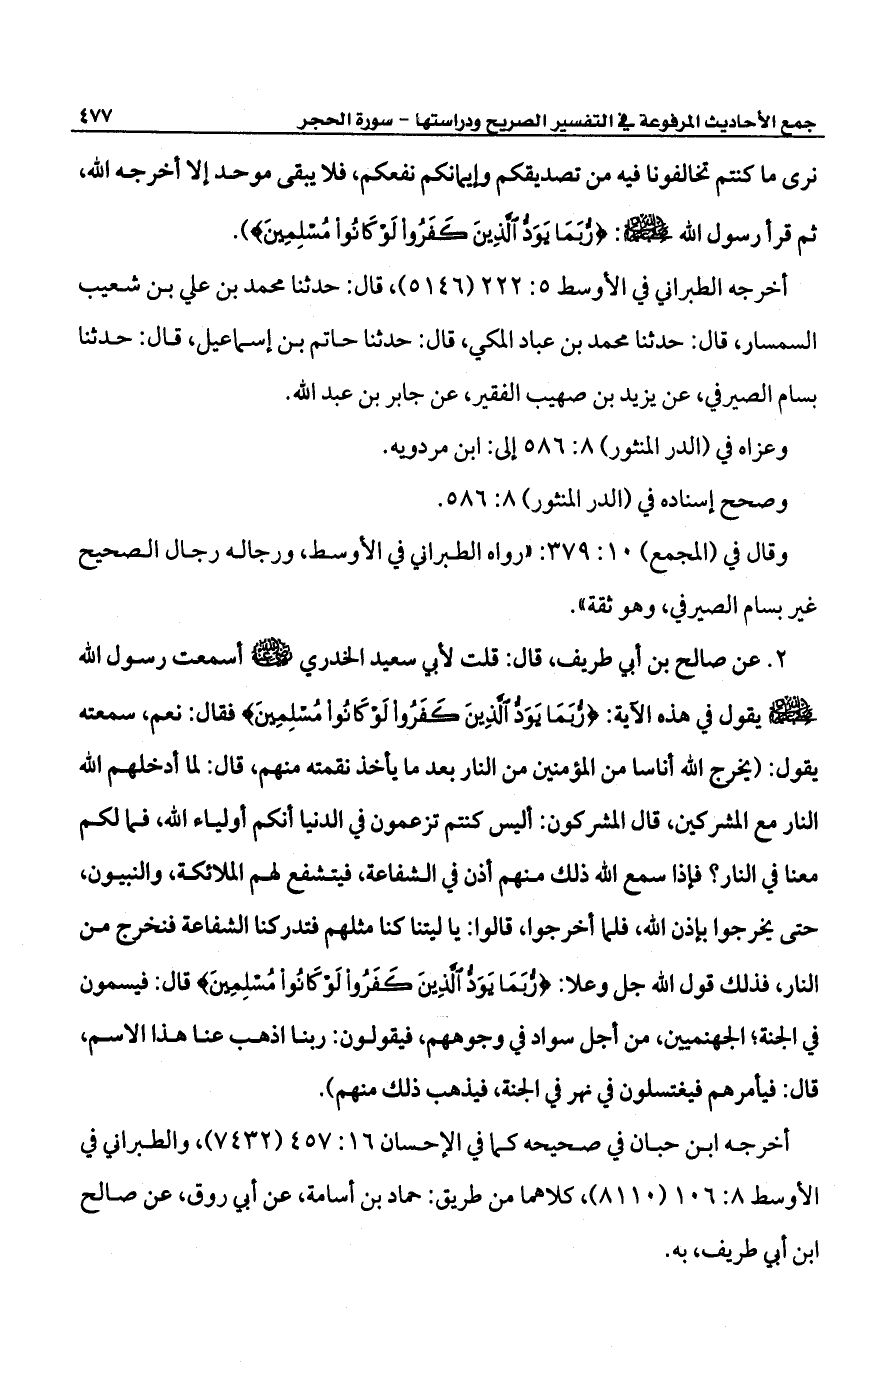 جمع الأحاديث المرفوعة في التفسير الصريح ودراستها - سورة الحجر ٤٧٧
نرى ما كنتم تخالفونا فيه من تصديقكم وإيمانكم نفعكم، فلا يبقى موحد إلا أخرجه الله،
ثم قرأ رسول الله ﷺ: ﴿رُّبَمَا يَوَدُّ ٱلَّذِينَ كَفَرُواْ لَوْ كَانُواْ مُسْلِمِينَ﴾).
أخرجه الطبراني في الأوسط ٥: ٢٢٢ (٥١٤٦)، قال: حدثنا محمد بن علي بن شعيب
السمسار، قال: حدثنا محمد بن عباد المكي، قال: حدثنا حاتم بن إسماعيل، قال: حدثنا
بسام الصيرفي، عن يزيد بن صهيب الفقير، عن جابر بن عبد الله.
وعزاه في (الدر المنثور) ٨: ٥٨٦ إلى: ابن مردويه.
وصحح إسناده في (الدر المنثور) ٨: ٥٨٦.
وقال في (المجمع) ١٠: ٣٧٩: «رواه الطبراني في الأوسط، ورجاله رجال الصحيح
غير بسام الصيرفي، وهو ثقة».
٢. عن صالح بن أبي طريف، قال: قلت لأبي سعيد الخدري رضي الله عنه أسمعت رسول الله
ﷺ يقول في هذه الآية: ﴿رُّبَمَا يَوَدُّ ٱلَّذِينَ كَفَرُواْ لَوْ كَانُواْ مُسْلِمِينَ﴾ فقال: نعم، سمعته
يقول: (يخرج الله أناسا من المؤمنين من النار بعد ما يأخذ نقمته منهم، قال: لما أدخلهم الله
النار مع المشركين، قال المشركون: أليس كنتم تزعمون في الدنيا أنكم أولياء الله، فما لكم
معنا في النار؟ فإذا سمع الله ذلك منهم أذن في الشفاعة، فيتشفع لهم الملائكة، والنبيون،
حتى يخرجوا بإذن الله، فلما أخرجوا، قالوا: يا ليتنا كنا مثلهم فتدركنا الشفاعة فنخرج من
النار، فذلك قول الله جل وعلا: ﴿رُّبَمَا يَوَدُّ ٱلَّذِينَ كَفَرُواْ لَوْ كَانُواْ مُسْلِمِينَ﴾ قال: فيسمون
في الجنة؛ الجهنميين، من أجل سواد في وجوههم، فيقولون: ربنا اذهب عنا هذا الاسم،
قال: فيأمرهم فيغتسلون في نهر في الجنة، فيذهب ذلك منهم).
أخرجه ابن حبان في صحيحه كما في الإحسان ١٦: ٤٥٧ (٧٤٣٢)، والطبراني في
الأوسط ٨: ١٠٦ (٨١١٠)، كلاهما من طريق: حماد بن أسامة، عن أبي روق، عن صالح
ابن أبي طريف، به.